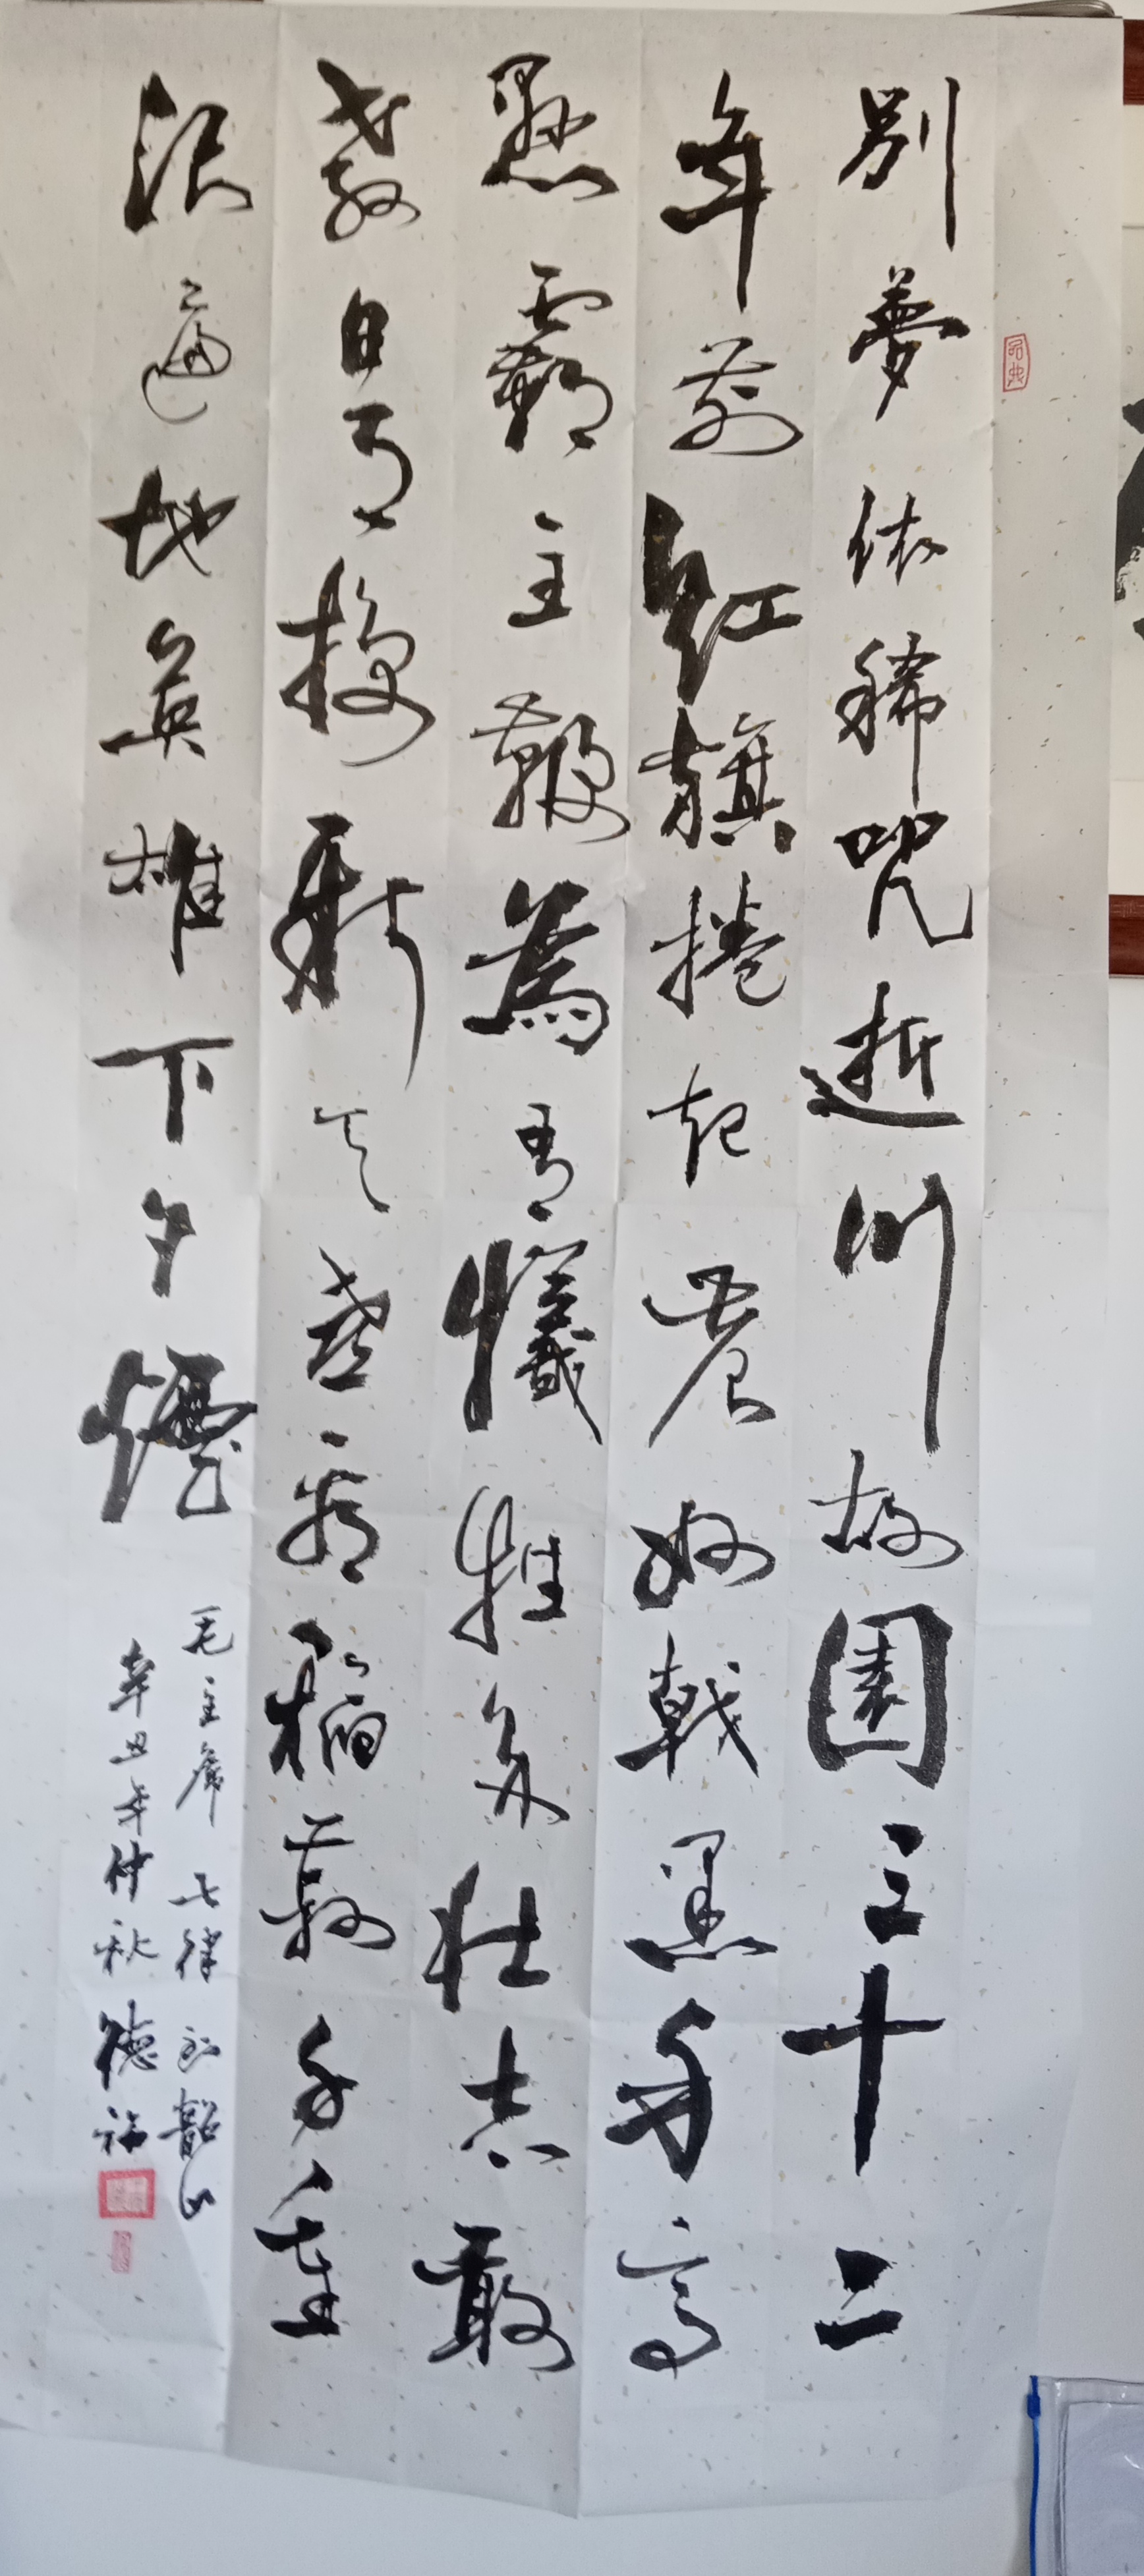 别夢依稀咒逝川故園三十二
年前紅旗捲起農奴戟黑手高
懸霸主鞭為有犧牲多壮志敢
教日月换新天喜看稻菽千重
浪遍地英雄下夕煙
毛主席 七律 到韶山
辛丑年仲秋 德